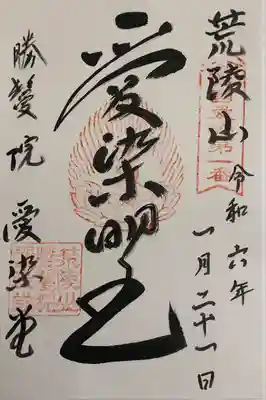 荒陵山
令和六年
一月二十一日
愛染明王
勝鬘院 愛染堂